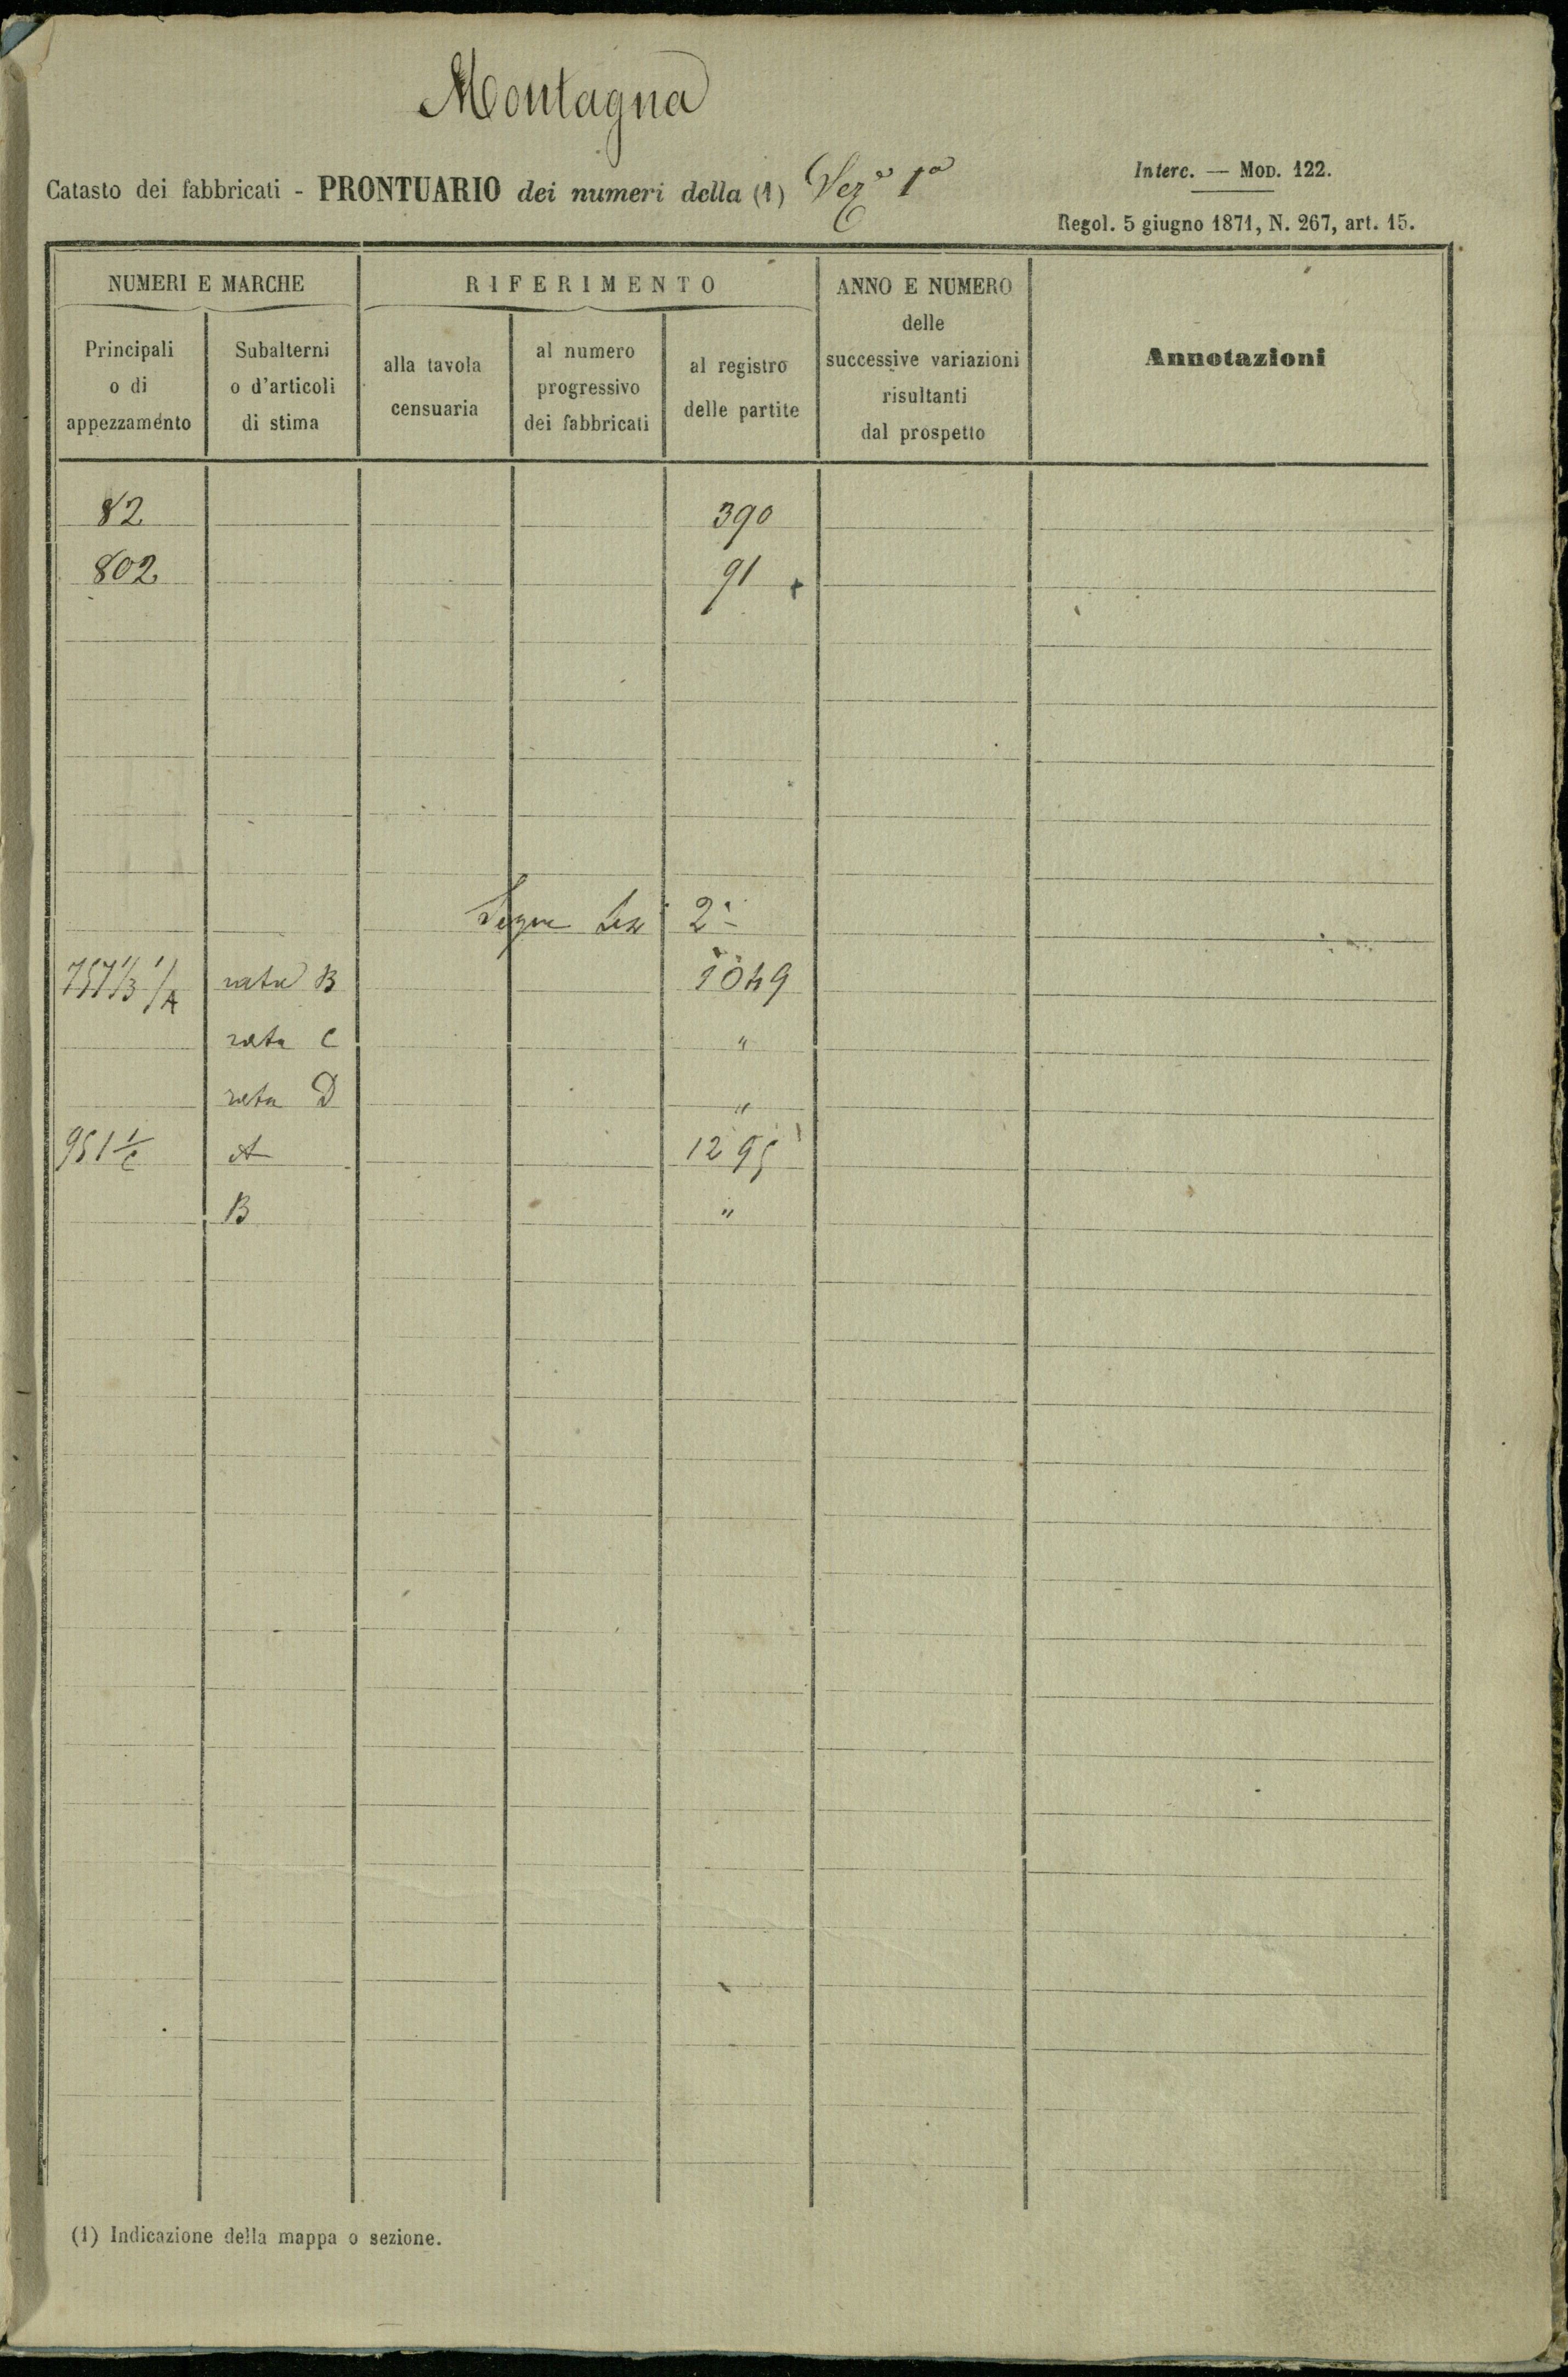 Montagna
Catasto dei fabbricati - PRONTUARIO dei numeri della (1) Sez.e 1a
Interc. — MOD. 122.
Regol. 5 giugno 1871, N. 267, art. 15.
NUMERI E MARCHE
RIFERIMENTO
ANNO E NUMERO
delle
successive variazioni
risultanti
dal prospetto
Annotazioni
Principali
o di
appezzamento
Subalterni
o d'articoli
di stima
alla tavola
censuaria
al numero
progressivo
dei fabbricati
al registro
delle partite
82 390
802 91
Segue Sez 2a
757 1/3 1/A rata B 1049
rata C "
rata D "
951 1/C A 1295
B "
(1) Indicazione della mappa o sezione.